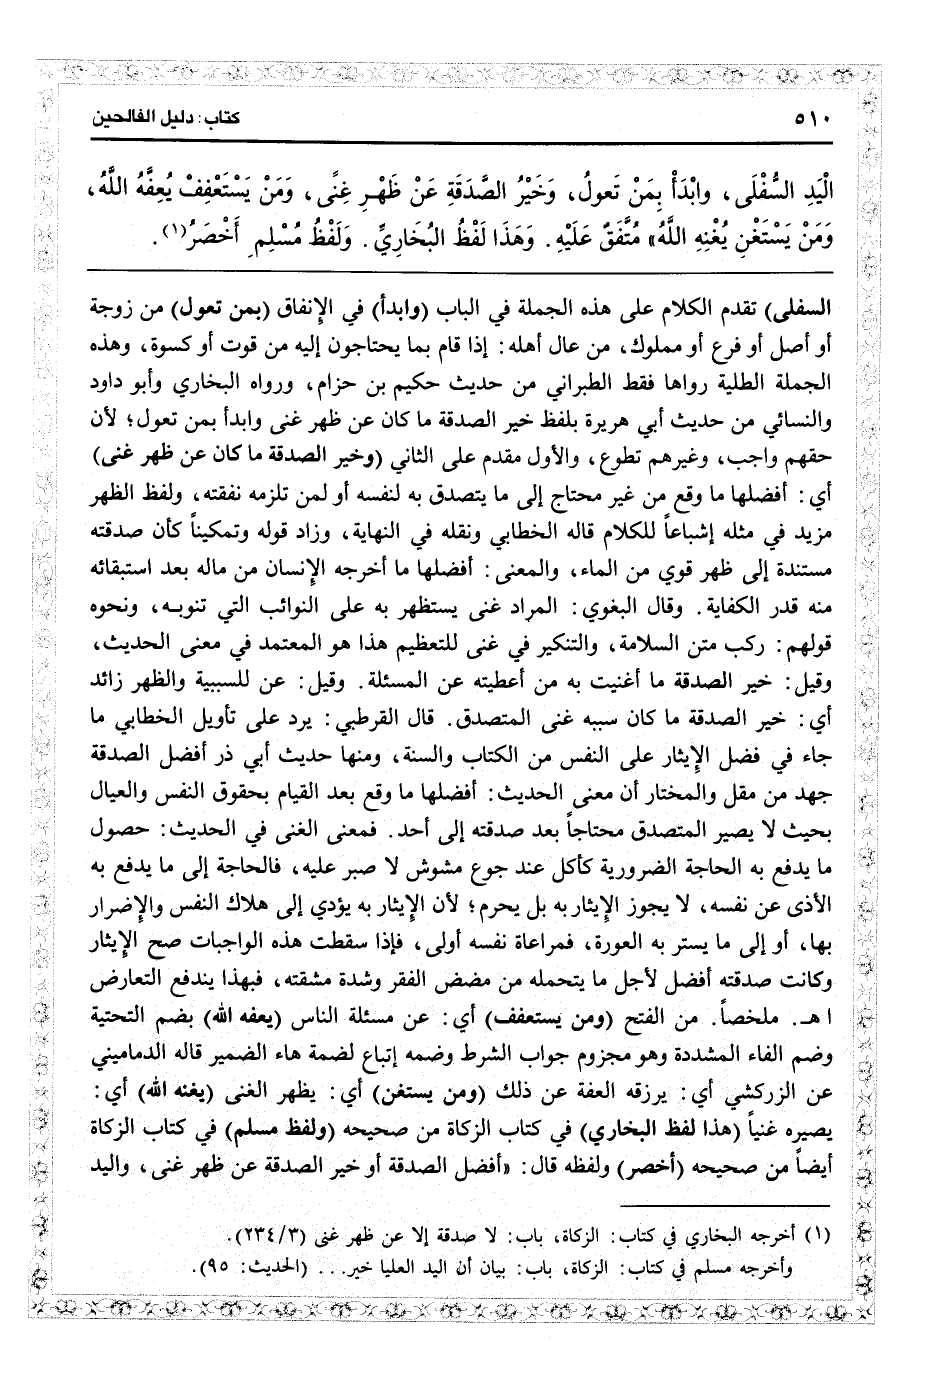 ٥١٠ كتاب: دليل الفالحين
الْيَدِ السُّفْلَى، وابْدَأْ بِمَنْ تَعولُ، وَخَيْرُ الصَّدَقَةِ عَنْ ظَهْرِ غِنًى، وَمَنْ يَسْتَعْفِفْ يُعِفَّهُ اللَّهُ،
وَمَنْ يَسْتَغْنِ يُغْنِهِ اللَّهُ» مُتَّفَقٌ عَلَيْهِ. وَهَذَا لَفْظُ البُخَارِيِّ. وَلَفْظُ مُسْلِمٍ أَخْصَرُ(١).
السفلى) تقدم الكلام على هذه الجملة في الباب (وابدأ) في الإنفاق (بمن تعول) من زوجة
أو أصل أو فرع أو مملوك، من عال أهله: إذا قام بما يحتاجون إليه من قوت أو كسوة، وهذه
الجملة الطلية رواها فقط الطبراني من حديث حكيم بن حزام، ورواه البخاري وأبو داود
والنسائي من حديث أبي هريرة بلفظ خير الصدقة ما كان عن ظهر غنى وابدأ بمن تعول؛ لأن
حقهم واجب، وغيرهم تطوع، والأول مقدم على الثاني (وخير الصدقة ما كان عن ظهر غنى)
أي: أفضلها ما وقع من غير محتاج إلى ما يتصدق به لنفسه أو لمن تلزمه نفقته، ولفظ الظهر
مزيد في مثله إشباعاً للكلام قاله الخطابي ونقله في النهاية، وزاد قوله وتمكيناً كأن صدقته
مستندة إلى ظهر قوي من الماء، والمعنى: أفضلها ما أخرجه الإنسان من ماله بعد استبقائه
منه قدر الكفاية. وقال البغوي: المراد غنى يستظهر به على النوائب التي تنوبه، ونحوه
قولهم: ركب متن السلامة، والتنكير في غنى للتعظيم هذا هو المعتمد في معنى الحديث،
وقيل: خير الصدقة ما أغنيت به من أعطيته عن المسئلة. وقيل: عن للسببية والظهر زائد
أي: خير الصدقة ما كان سببه غنى المتصدق. قال القرطبي: يرد على تأويل الخطابي ما
جاء في فضل الإيثار على النفس من الكتاب والسنة، ومنها حديث أبي ذر أفضل الصدقة
جهد من مقل والمختار أن معنى الحديث: أفضلها ما وقع بعد القيام بحقوق النفس والعيال
بحيث لا يصير المتصدق محتاجاً بعد صدقته إلى أحد. فمعنى الغنى في الحديث: حصول
ما يدفع به الحاجة الضرورية كأكل عند جوع مشوش لا صبر عليه، فالحاجة إلى ما يدفع به
الأذى عن نفسه، لا يجوز الإيثار به بل يحرم؛ لأن الإيثار به يؤدي إلى هلاك النفس والإضرار
بها، أو إلى ما يستر به العورة، فمراعاة نفسه أولى، فإذا سقطت هذه الواجبات صح الإيثار
وكانت صدقته أفضل لأجل ما يتحمله من مضض الفقر وشدة مشقته، فبهذا يندفع التعارض
ا هـ. ملخصاً. من الفتح (ومن يستعفف) أي: عن مسئلة الناس (يعفه الله) بضم التحتية
وضم الفاء المشددة وهو مجزوم جواب الشرط وضمه إتباع لضمة هاء الضمير قاله الدماميني
عن الزركشي أي: يرزقه العفة عن ذلك (ومن يستغن) أي: يظهر الغنى (يغنه الله) أي:
يصيره غنياً (هذا لفظ البخاري) في كتاب الزكاة من صحيحه (ولفظ مسلم) في كتاب الزكاة
أيضاً من صحيحه (أخصر) ولفظه قال: «أفضل الصدقة أو خير الصدقة عن ظهر غنى، واليد
(١) أخرجه البخاري في كتاب: الزكاة، باب: لا صدقة إلا عن ظهر غنى (٢٣٤/٣).
وأخرجه مسلم في كتاب: الزكاة، باب: بيان أن اليد العليا خير... (الحديث: ٩٥).